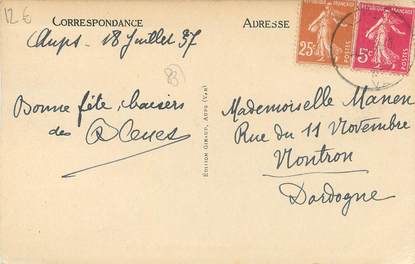 12 €
CORRESPONDANCE
ADRESSE
Aups - 18 Juillet 37
83
RÉPUBLIQUE FRANÇAISE
25c
POSTES
RÉPUBLIQUE FRANÇAISE
5c
POSTES
Bonne fête, baisers
des
ÉDITION GIRAUD, AUPS (VAR)
Mademoiselle Manen
Rue du 11 Novembre
Nontron
Dordogne